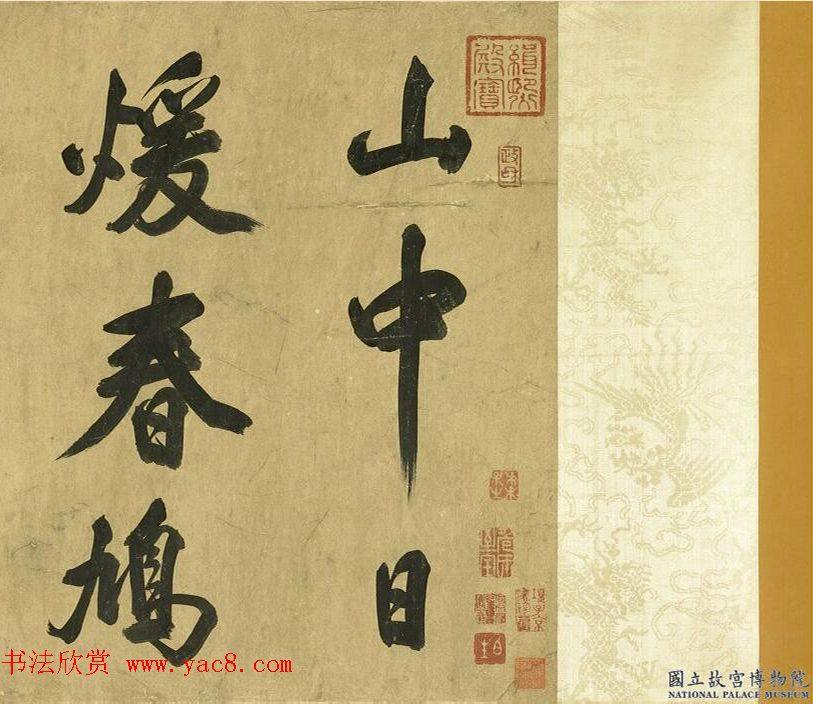 山中日
煖春鳩
書法欣賞 www.yac8.com
國立故宮博物院
NATIONAL PALACE MUSEUM